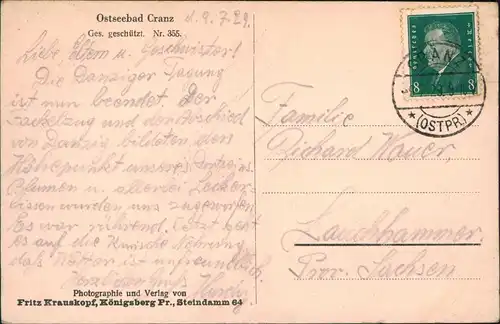 Ostseebad Cranz
d. 9. 7. 29.
Ges. geschützt. Nr. 355.
Liebe Eltern u. Geschwister!
Die Danziger Tagung
ist nun beendet. Der
Fackelzug und der Abschied
von Danzig bildeten den
Höhepunkt unseres
Blumen u. allerlei Lecker-
bissen wurden uns zugeworfen
Es war rührend. Jetzt geht
es auf die Kurische Nehrung
das Wetter ist unfreundlich.
Herzlichen Gruß
Photographie und Verlag von
Fritz Krauskopf, Königsberg Pr., Steindamm 64
DEUTSCHES REICH
8 8
(OSTPR)
Familie
Richard Hauer,
Lauchhammer
Prov. Sachsen